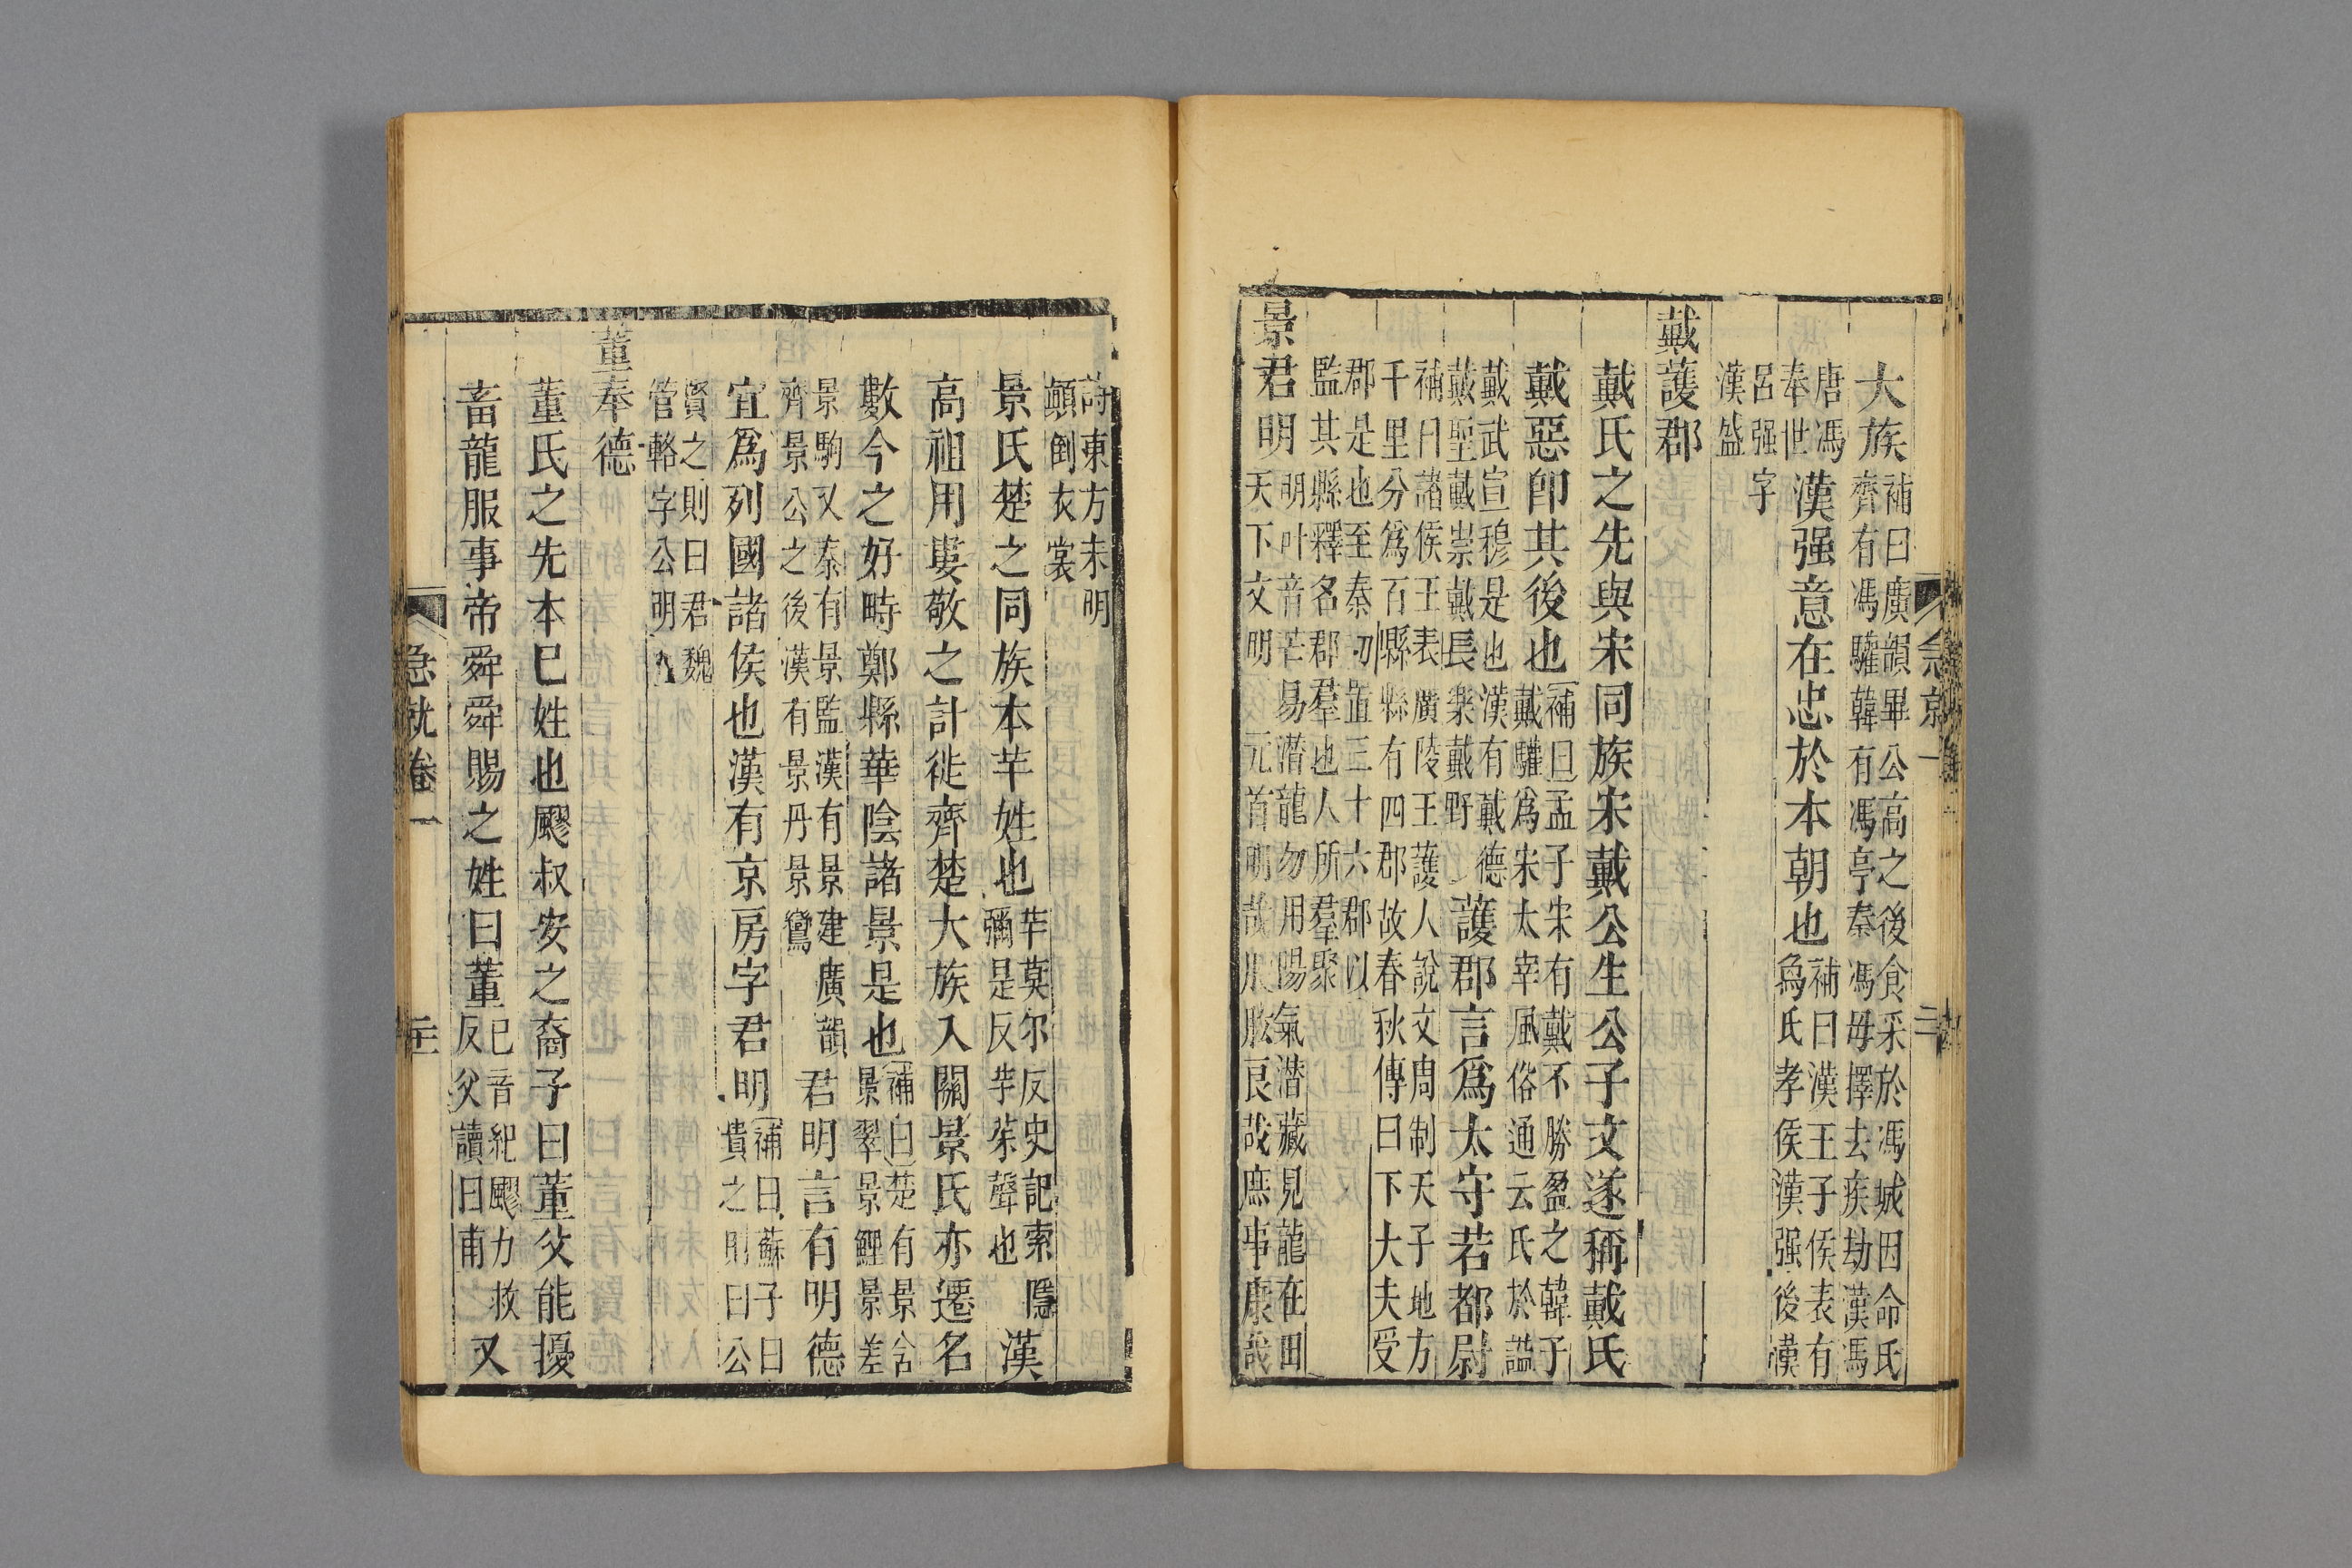 大族補曰廣韻畢公高之後食采於馮城因命氏
齊有馮驩韓有馮亭秦馮毋擇去疾劫漢馮
唐馮
奉世漢强意在忠於本朝也補曰漢王子侯表有
烏氏孝侯漢强後漢
呂强字
漢盛
戴護郡
戴氏之先與宋同族宋戴公生公子文遂稱戴氏
戴惡卽其後也補曰孟子宋有戴不勝盈之韓子
戴驩爲宋太宰風俗通云氏於謚
戴武宣穆是也漢有戴德
戴聖戴崇戴長樂戴野護郡言爲太守若都尉
補曰諸侯王表廣陵王護人說文周制天子地方
千里分爲百縣縣有四郡故春秋傳曰下大夫受
郡是也至秦初置三十六郡以
監其縣釋名郡羣也人所羣聚
景君明明叶音芒易潛龍勿用陽氣潛藏見龍在田
天下文明 元首明哉股肱良哉庶事康哉
詩東方未明
顛倒衣裳
景氏楚之同族本芉姓也芉莫尔反史記索隱
彌是反芉羊聲也漢
高祖用婁敬之計徙齊楚大族入關景氏亦遷名
數今之好畤鄭縣華陰諸景是也補曰楚有景舍
景翠景鯉景差
景駒又秦有景監漢有景建廣韻
齊景公之後漢有景丹景鸞君明言有明德
宜爲列國諸侯也漢有京房字君明補曰蘇子曰
貴之則曰公
賢之則曰君魏
管輅字公明
董奉德
董氏之先本巳姓也飂叔安之裔子曰董父能擾
畜龍服事帝舜舜賜之姓曰董巳音紀飂力救
反父讀曰甫又
急就卷一